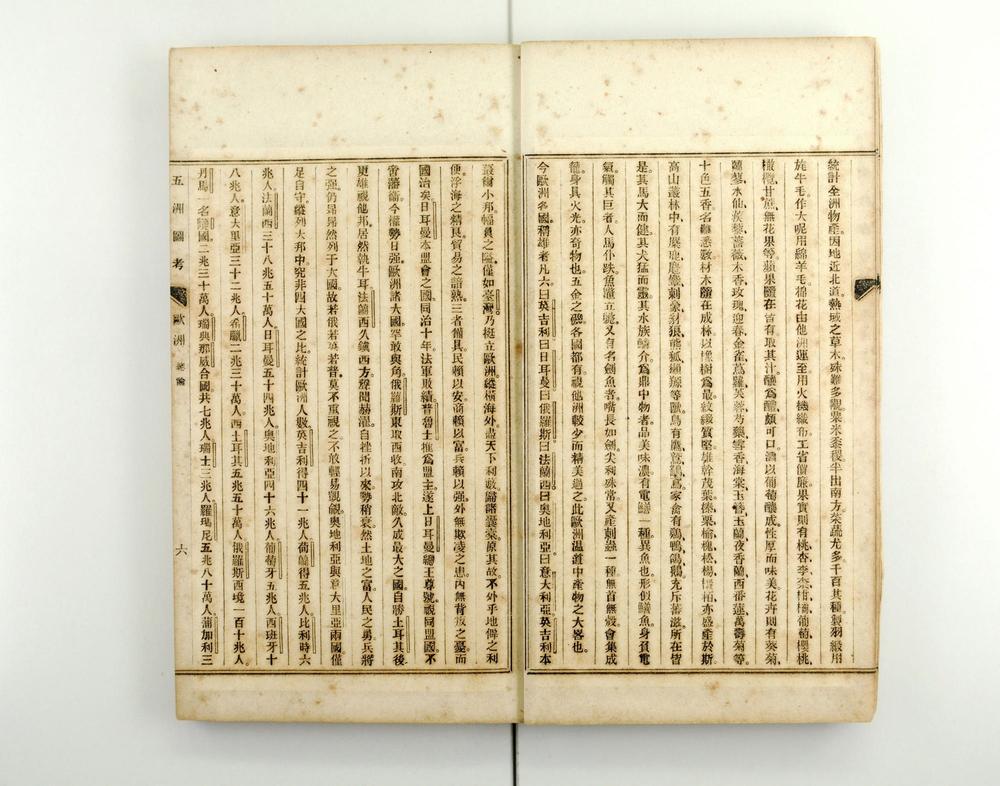 統計全洲物產因地近北道熱域之草木殊難多覯粟米黍稷半出南方菜蔬尤多千百其種製羽緞用
旄牛毛作大呢用綿羊毛棉花由他洲運至用火機織布工省價廉果實則有桃杏李柰柑橘葡萄櫻桃
橄欖甘蔗無花果等蘋果隨在皆有取其汁釀為醴頗可口濃以葡萄釀成性厚而味美花卉則有葵菊
水仙蒺藜薔薇木香玫瑰迎春金雀蔦蘿芙蓉芍藥雪香海棠玉簪玉蘭夜香蘭西番蓮萬壽菊等
十色五香名難悉數材木隨在成林以橡樹為最紋緻質堅雄幹茂葉榛栗榆槐松楊柏亦盛產於斯
高山叢林中有麋鹿刺蝟豺狼熊狐獺等獸鳥有鷹鶴家禽有鷄鴨鴿鵝充斥蕃滋所在皆
是其馬大而健其犬猛而靈其水族鱗介為鼎中物者品美味濃有電鱔一種異魚也形似鱔魚身貧電
氣觸其巨者人馬仆跌魚躍立斃又有名劍魚者嘴長如劍尖利殊常又產刺蟲一種無首無殼會集成
籠身具火光亦奇物也五金之礦各國都有視他洲較少而精美過之此歐洲溫道中產物之大畧也
今歐洲各國稱雄者凡六曰英吉利曰日耳曼曰俄羅斯曰法蘭西曰奧地利亞曰意大利亞英吉利本
蕞爾小邦幅員之隘僅如臺灣乃挺立歐洲縱橫海外盡天下利藪歸諸囊橐原其故不外乎地俾之利
便浮海之精良貿易之諳熟三者備具民賴以安商賴以富兵賴以强外無欺凌之患內無背叛之憂而
國治矣日耳曼本盟會之國同治十年法軍敗績普魯士推為盟主遂上日耳曼總王尊號視同盟國不
啻藩衞今權勢日强歐洲諸大國罕敢與角俄羅斯東取西收南攻北敵久成最大之國自勝土耳其後
更雄視他邦居然執牛耳法蘭西久鎮西方聲聞赫濯自挫折以來勢稍衰然土地之富人民之勇兵將
之强仍昂昂然列于大國故若俄若英若普莫不重視之不敢輕易覬覦奧地利亞與意大里亞兩國僅
足自守縱列大邦中究非四大國之比統計歐洲人數英吉利得四十一兆人荷蘭得五兆人比利時六
兆人法蘭西三十八兆五十萬人日耳曼五十四兆人奧地利亞四十六兆人葡萄牙五兆人西班牙十
八兆人意大里亞三十二兆人希臘二兆三十萬人西土耳其五兆五十萬人俄羅斯西境一百十兆人
丹馬一名嗹國二兆三十萬人瑞典那威合國共七兆人瑞士三兆人羅瑪尼五兆八十萬人蒲加利三
五洲圖考 歐洲 總論 六